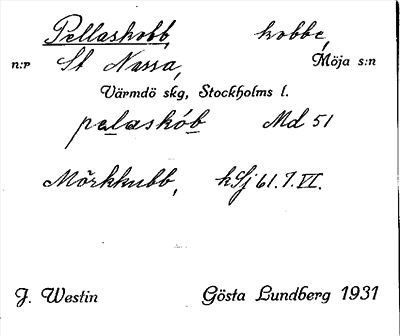 Pellaskobb, kobbe,
n:r St Nassa, Möja s:n
Värmdö skg, Stockholms l.
palaskób Md 51
Mörkkubb, kSj 61.7.VI.
J. Westin Gösta Lundberg 1931